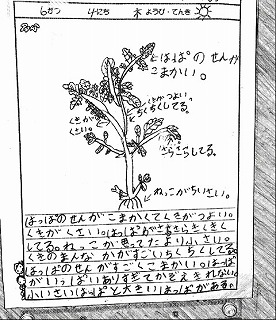 6がつ 4にち 木ようび・てんき
はっぱのせんが
こまかい。
はがつよい。
ちくちくしてる。
くきが
くさい。
さらさらしてる。
ねっこがちいさい。
はっぱのせんがこまかくてくきがつよい。
くきがくさい。はっぱがさらさらちくちく
してる。ねっこが思ってたより小さい。
くきのまんなかがすごいちくちくしてる。
はっぱのせんがすごくこまかい。はっぱ
がいっぱいありすぎてかぞえきれない。
小さいはっぱと大きいはっぱがある。